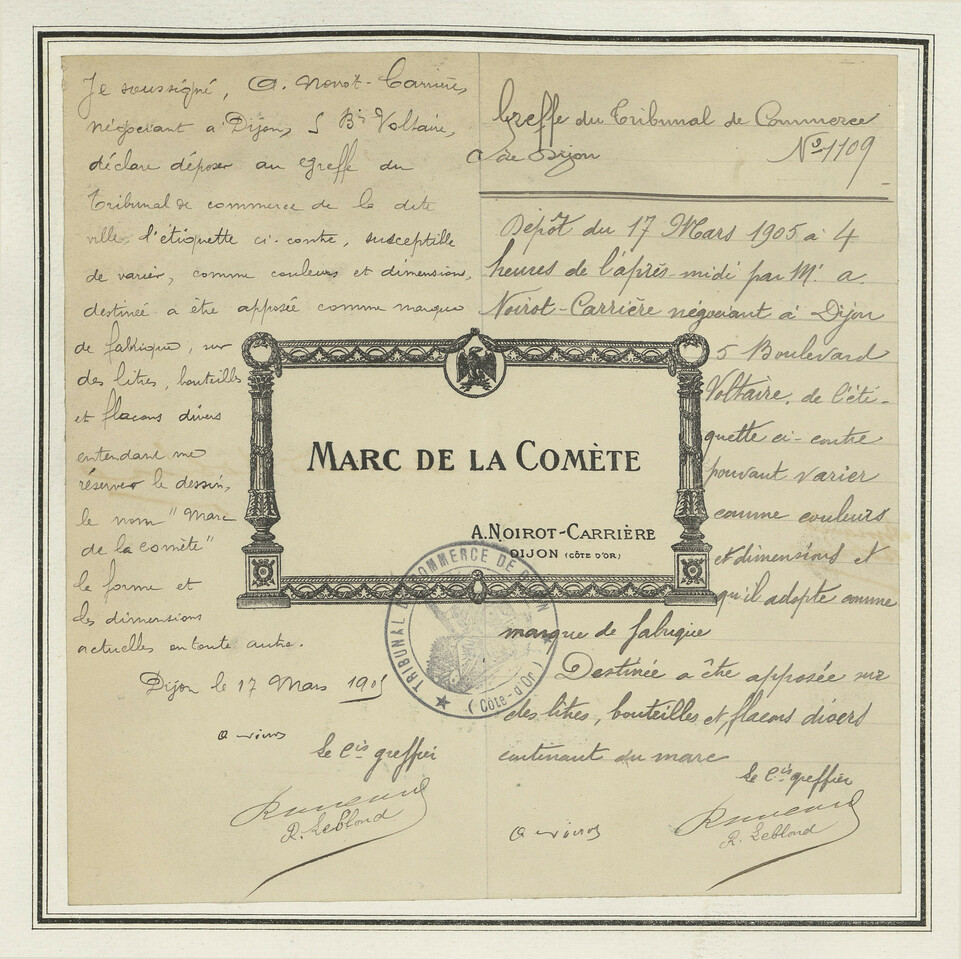 Je soussigné, A. Noirot-Carrière
négociant à Dijon, 5 Bd Voltaire,
déclare déposer au Greffe du
Tribunal de commerce de la dite
ville l'étiquette ci-contre, susceptible
de varier, comme couleurs et dimensions,
destinée a être apposée comme marque
de fabrique, sur
des litres, bouteilles
et flacons divers
entendant me
réserver le dessin,
le nom "Marc
de la comète"
la forme et
les dimensions
actuelles ou toute autre.
Dijon le 17 Mars 1905
Le Cis greffier
R. Leblond
Greffe du Tribunal de Commerce
de Dijon No 1109
Dépôt du 17 Mars 1905 à 4
heures de l'après-midi par Mr A.
Noirot-Carrière négociant à Dijon
5 Boulevard
Voltaire, de l'éti-
quette ci-contre
pouvant varier
comme couleurs
et dimensions et
qu'il adopte comme
marque de fabrique
Destinée a être apposée sur
des litres, bouteilles et flacons divers
contenant du marc
Le Cis greffier
R. Leblond
MARC DE LA COMÈTE
A. NOIROT-CARRIÈRE
DIJON (CÔTE D'OR)
TRIBUNAL DE COMMERCE DE DIJON
(Côte-d'Or)